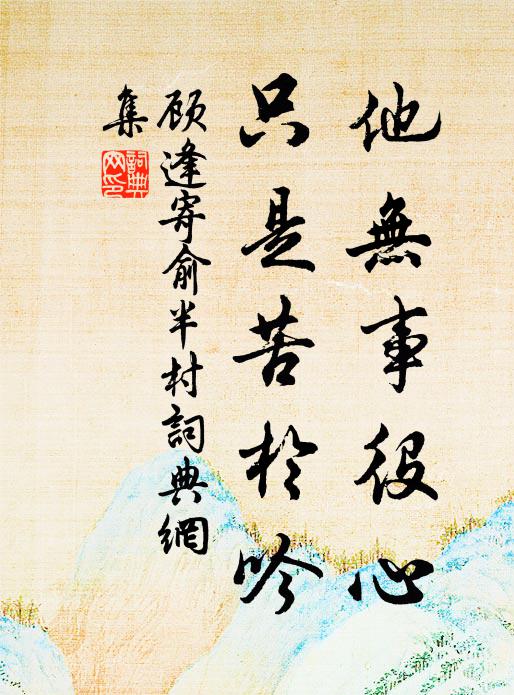 他無事役心
只是苦於吟
顧逢寄俞半村詞典網
集
詞典
网印